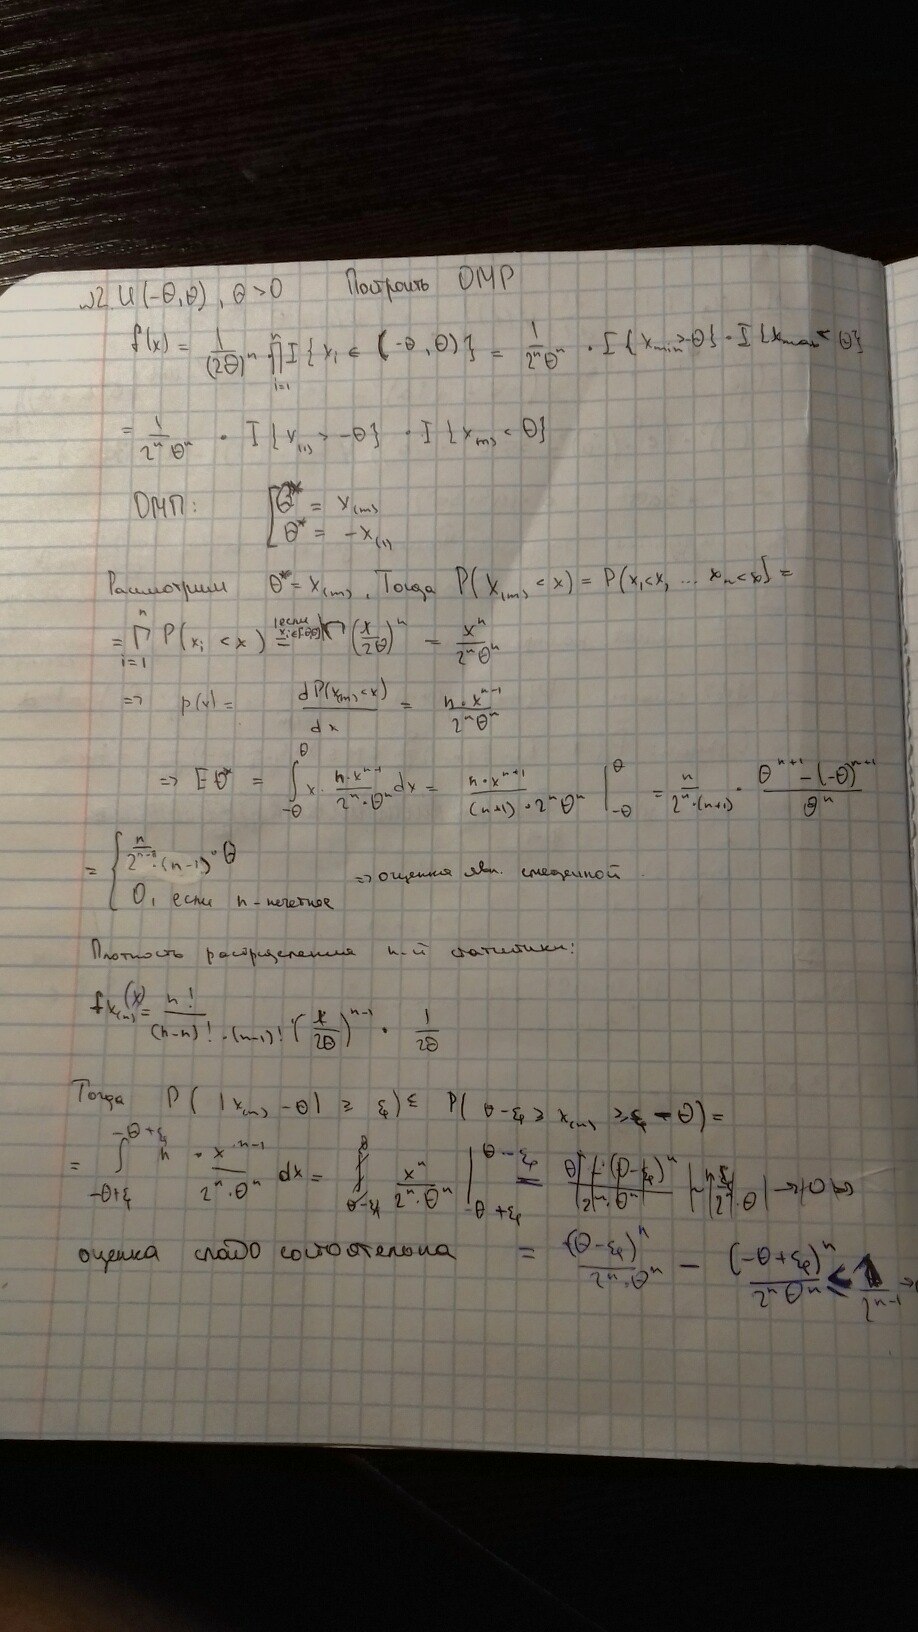 №2. U(-θ,θ), θ>0 Построить ОМР
f(x) = 1/(2θ)^n ∏_{i=1}^n I{x_i ∈ (-θ, θ)} = 1/(2^n θ^n) · I{x_min > -θ} · I{x_max < θ}
= 1/(2^n θ^n) · I{x_(1) > -θ} · I{x_(n) < θ}
ОМП: [θ* = x_(n)
θ* = -x_(1)
Рассмотрим θ* = x_(n). Тогда P(x_(n) < x) = P(x_1<x, ... x_n<x) =
= ∏_{i=1}^n P(x_i < x) = (x/2θ)^n = x^n/(2^n θ^n)
=> p(x) = dP(x_(n) < x)/dx = n·x^{n-1}/(2^n θ^n)
=> Eθ* = ∫_{-θ}^{θ} x · n·x^{n-1}/(2^n·θ^n) dx = n·x^{n+1}/((n+1)·2^n θ^n) |_{-θ}^{θ} = n/(2^n·(n+1)) · (θ^{n+1} - (-θ)^{n+1})/θ^n
= { n/(2^{n-1}·(n-1)) · θ
0, если n - нечетное => оценка явл. смещенной.
Плотность распределения n-й статистики:
f_{x_(n)}(x) = n!/((n-n)!·(n-1)!) · (x/2θ)^{n-1} · 1/2θ
Тогда P(|x_(n) - θ| ≥ ξ) ≤ P(θ-ξ ≥ x_(n) ≥ ξ-θ) =
= ∫_{-θ+ξ}^{-θ+ξ} n · x^{n-1}/(2^n·θ^n) dx = x^n/(2^n·θ^n) |_{-θ+ξ}^{θ-ξ} =
оценка слабо состоятельна = (θ-ξ)^n/(2^n·θ^n) - (-θ+ξ)^n/(2^n θ^n) ≤ 1/2^{n-1} →